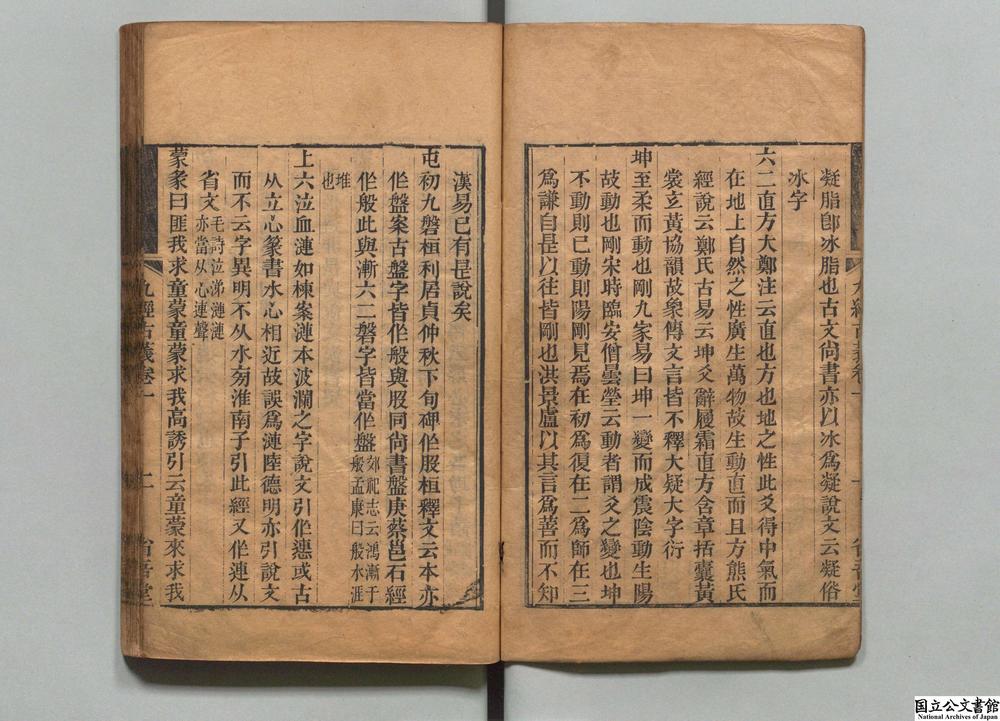 凝脂卽冰脂也古文尙書亦以冰爲凝說文云凝俗
冰字
六二直方大鄭注云直也方也地之性此爻得中氣而
在地上自然之性廣生萬物故生動直而且方熊氏
經說云鄭氏古易云坤爻辭履霜直方含章括囊黃
裳玄黃協韻故象傳文言皆不釋大疑大字衍
坤至柔而動也剛九家易曰坤一變而成震陰動生陽
故動也剛宋時臨安僧曇瑩云動者謂爻之變也坤
不動則已動則陽剛見焉在初爲復在二爲師在三
爲謙自是以往皆剛也洪景盧以其言爲善而不知
九經古義卷一
一
省吾堂
漢易已有是說矣
屯初九磐桓利居貞仲秋下旬碑作股桓釋文云本亦
作盤案古盤字皆作般與股同尙書盤庚蔡邕石經
作般此與漸六二磐字皆當作盤郊祀志云鴻漸于
般孟康曰般水涯
堆
也
上六泣血漣如棟案漣本波瀾之字說文引作㦁或古
从立心篆書水心相近故誤爲漣陸德明亦引說文
而不云字異明不从水旁淮南子引此經又作連从
省文毛詩泣涕漣漣
亦當从心連聲
蒙彖曰匪我求童蒙童蒙求我高誘引云童蒙來求我
九經古義卷一
二
省吾堂
国立公文書館
National Archives of Japan